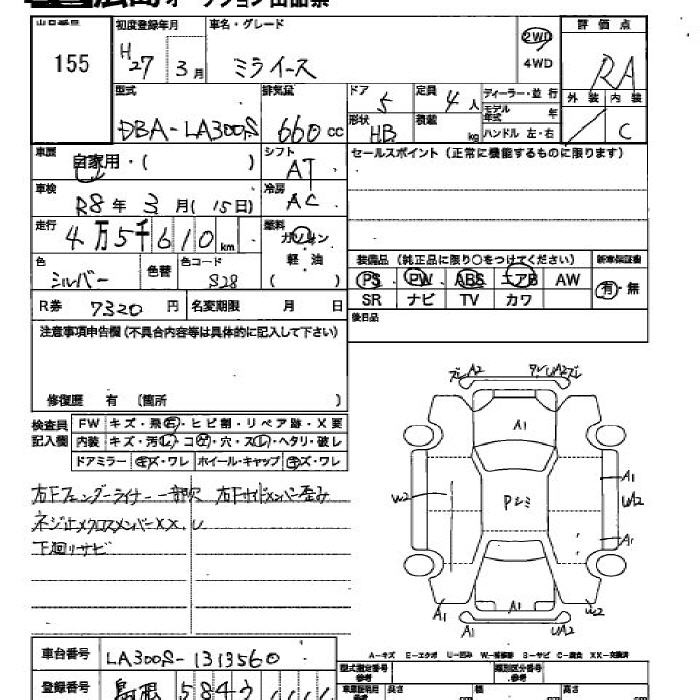 広島オークション出品票
出品番号 初度登録年月 車名・グレード 評価点
155 H27 3月 ミライース 2WD 4WD RA
型式 排気量 ドア 定員 ディーラー・並行 外装 内装
DBA-LA300S 660cc 5 4人 モデル年式 年 C
形状 HB 積載 kg ハンドル 左・右
車歴 自家用・( ) シフト AT セールスポイント(正常に機能するものに限ります)
車検 R8年 3月(15日) 冷房 AC
走行 4万5千610km 燃料 ガソリン
色 シルバー 色替 色コード S28 軽油 ( )
装備品(純正品に限り○をつけてください) 新車保証書
PS PW ABS エアB AW 有・無
SR ナビ TV カワ
R券 7320円 名変期限 月 日
後日品
注意事項申告欄(不具合内容等は具体的に記入して下さい)
修復歴 有 (箇所 )
検査員記入欄 FW キズ・飛石・ヒビ割・リペア跡・X要
内装 キズ・汚レ・コゲ・穴・スレ・ヘタリ・破レ
ドアミラー キズ・ワレ ホイール・キャップ キズ・ワレ
右Fフェンダーライナー一部欠 右Fサイドメンバー歪み
ネジ止メクロスメンバーXX.U
下廻りサビ
ズレ A2 UA2 ズレ
A1
A1
W2 Pシミ W2
A1
A1 A1 W2
A1 UA2
A-キズ E-エクボ U-凹み W-補修跡 S-サビ C-腐食 XX-交換済
車台番号 LA300S-1313560
型式指定番号 類別区分番号
登録番号 島根 584
長さ 幅 高さ